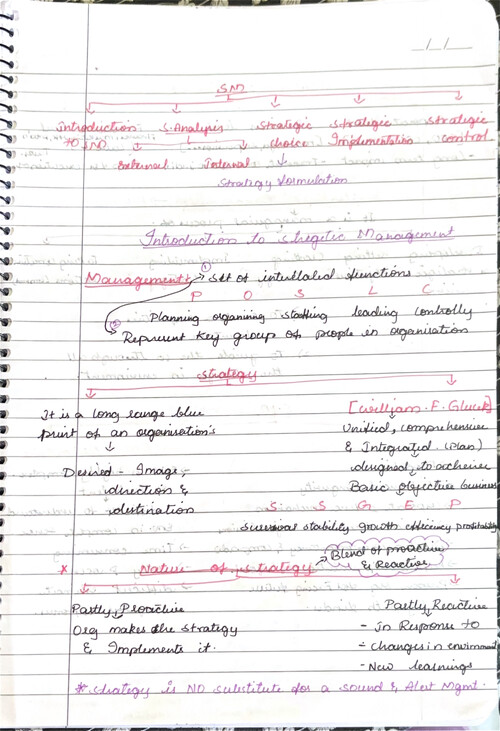 SM
Introduction S. Analysis Strategic Strategic Strategic
to SM External Internal choice Implementation control
Strategy formulation
Introduction to stregetic Management
Management → ① Set of interllated functions
P O S L C
Planning organising staffing leading controlly
② Represent Key group of people in organisation
Strategy
It is a long range blue
print of an organisation's
Desired - Image,
direction &
destination
[william. F. Gluck]
Unified, comprehensive
& Integrated (Plan)
designed, to achieive
Basic objective business
S S G E P
Survival stability growth efficiency profitability
* Nature of strategy → Blend of proactive
& Reactive
Partly Proactive
Org makes the strategy
& Implements it.
Partly Reactive
- in Response to
- changes in environment
- New learnings
* Strategy is NO substitute for a sound & Alert Mgmt.